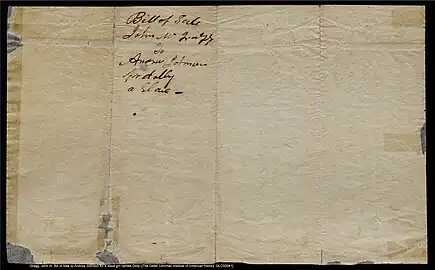 Bill of Sale
John W. Gragg
To
Andrew Johnson
for dolly
a Slave –
Gragg, John W. Bill of Sale to Andrew Johnson for a slave girl named Dolly. (The Gilder Lehrman Institute of American History, GLC02041)